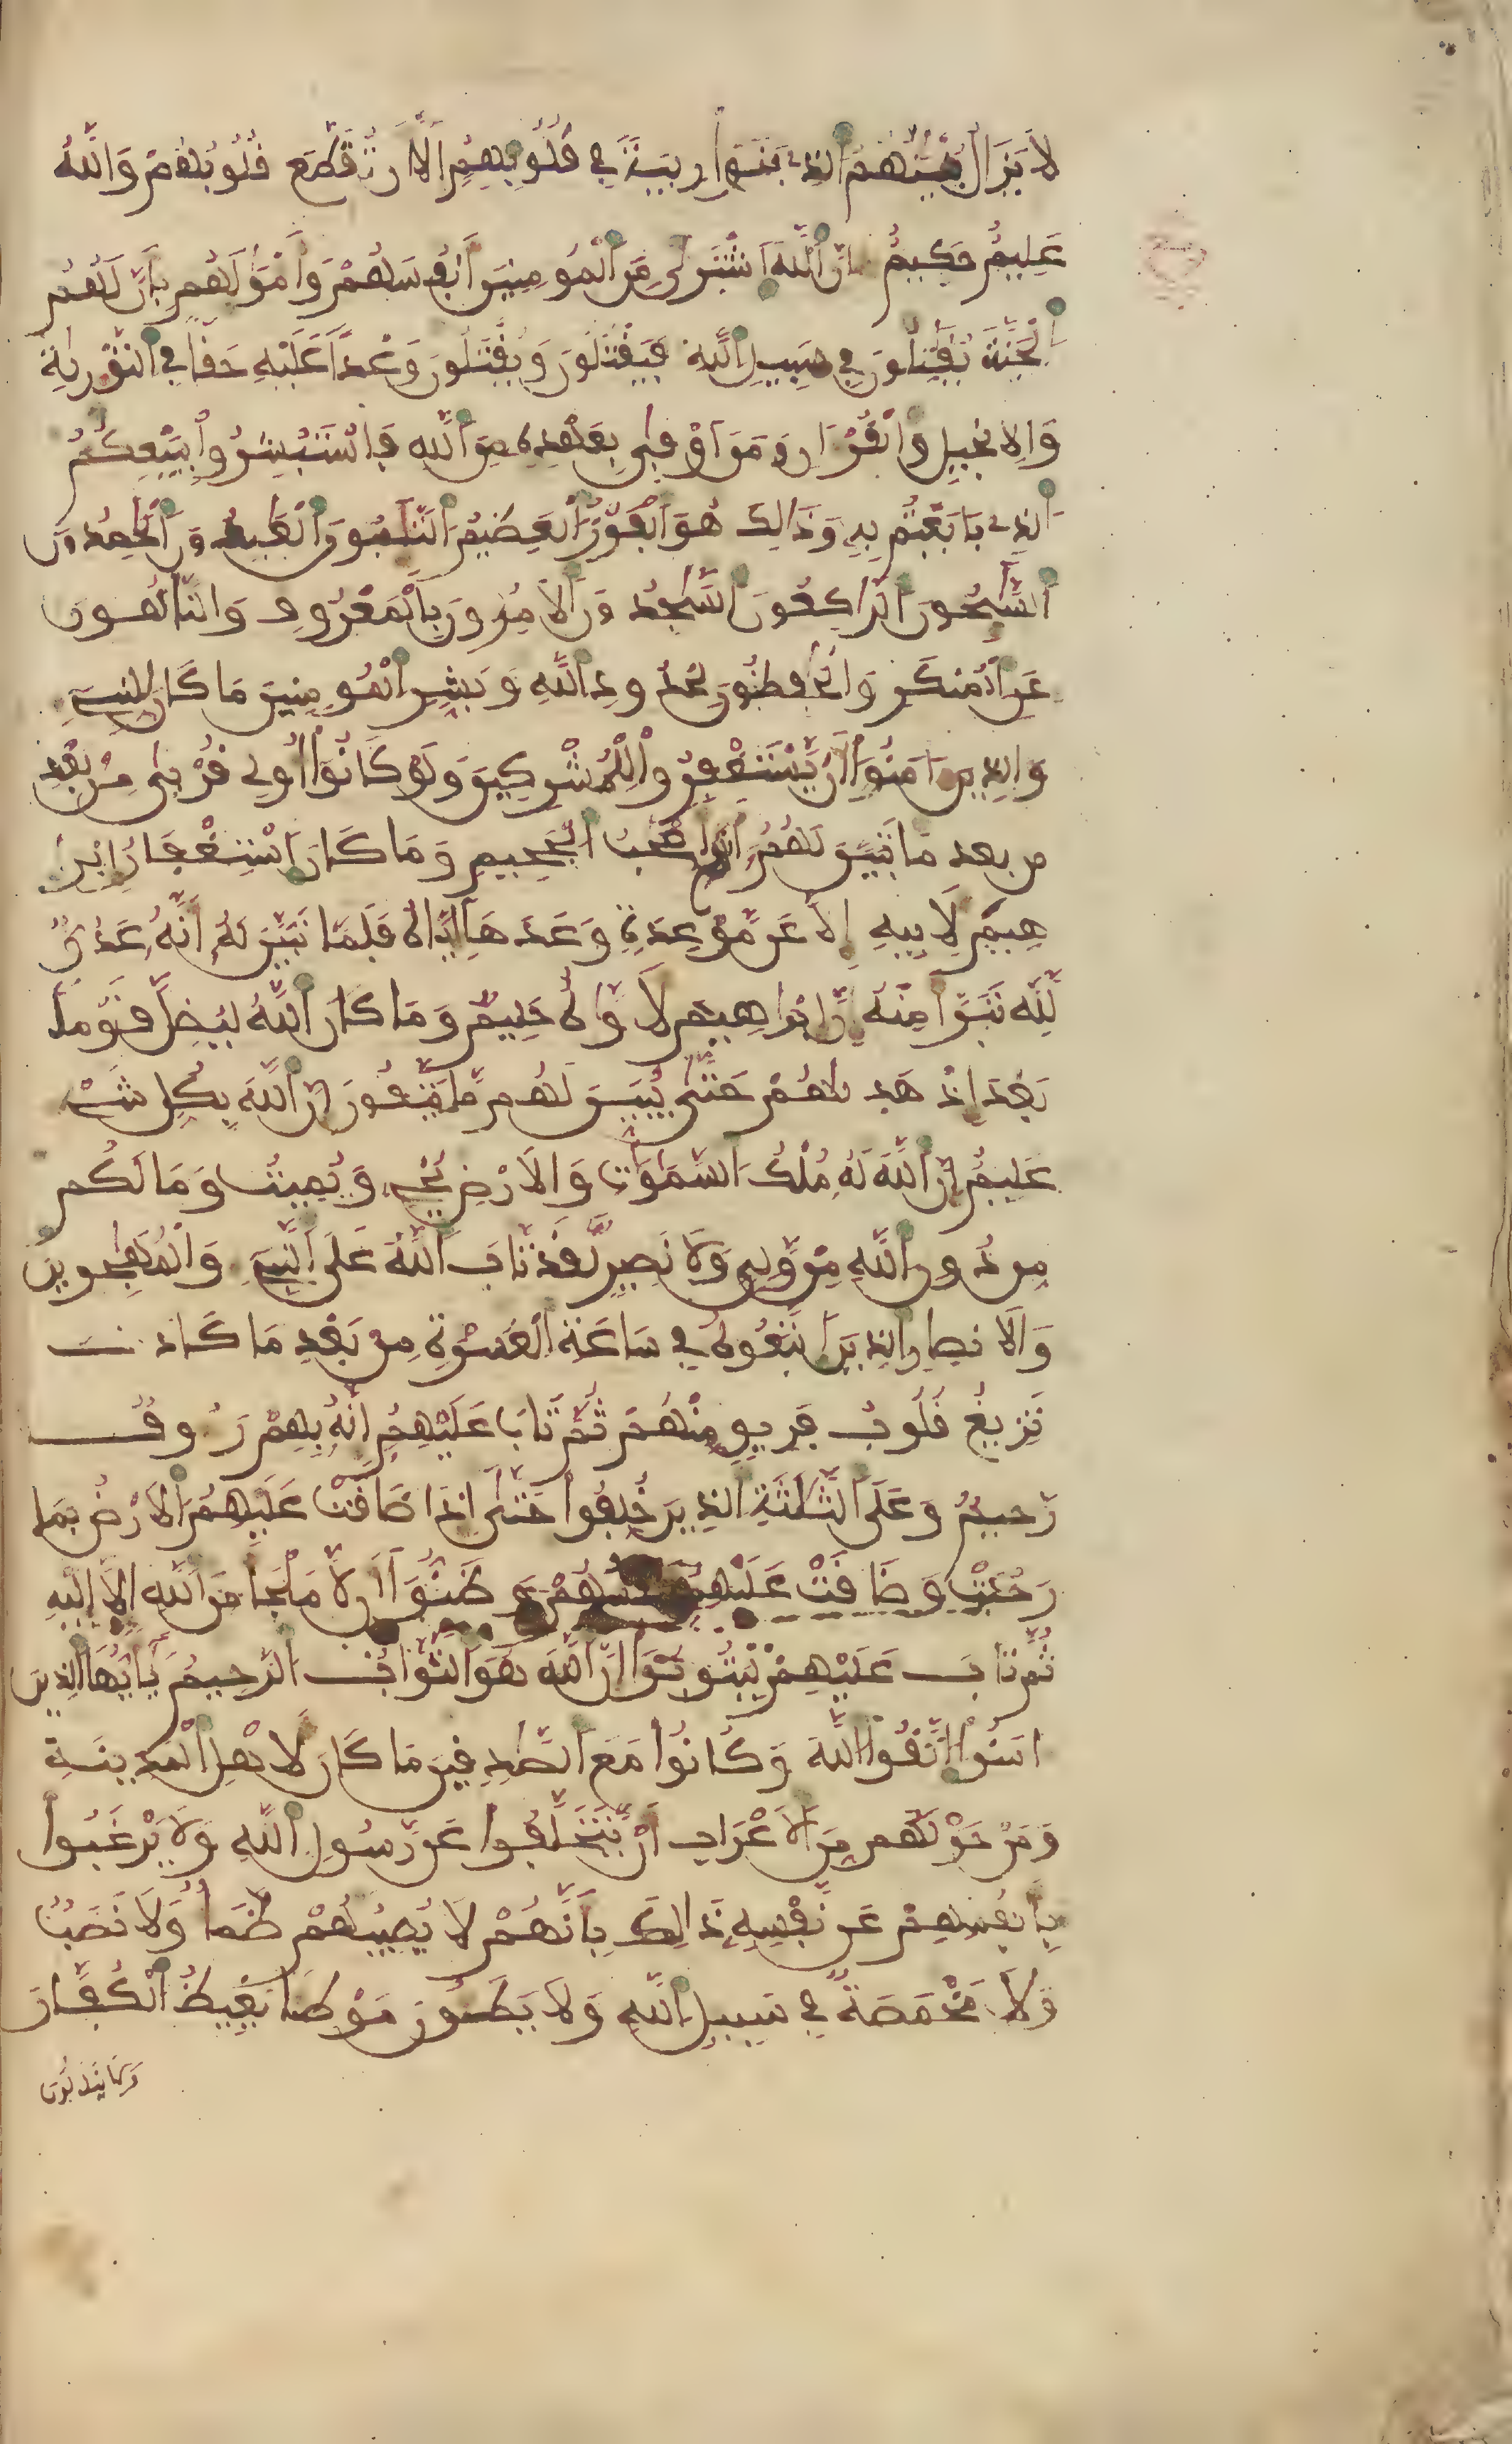 لَا يَزَالُ بُنْيَٰنُهُمُ الذِے بَنَوْا رِيبَةً فِي قُلُوبِهِمُ إِلَّا أَن تُقَطَّعَ قُلُوبُهُمْ وَاللَّهُ
عَلِيمٌ حَكِيمٌ إِنَّ اللَّهَ اَشْتَرٜىٰ مِنَ الْمُومِنِينَ أَنفُسَهُمْ وَأَمْوَٰلَهُم بِأَنَّ لَهُمُ
الْجَنَّةَ يُقَٰتِلُونَ فِي سَبِيلِ اللَّهِ فَيَقْتُلُونَ وَيُقْتَلُونَ وَعْداً عَلَيْهِ حَقّاً فِي التَّوْرٜيٰةِ
وَالِانجِيلِ وَالْقُرْءَانِ وَمَنَ اَوْفٜىٰ بِعَهْدِهِ مِنَ اللَّهِ فَاسْتَبْشِرُوا بِبَيْعِكُمُ
الذِے بَايَعْتُم بِهِ وَذَٰلِكَ هُوَ الْفَوْزُ الْعَظِيمُ التَّٰئِبُونَ الْعَٰبِدُونَ الْحَٰمِدُونَ
السَّٰئِحُونَ الرَّٰكِعُونَ السَّٰجِدُونَ الَامِرُونَ بِالْمَعْرُوفِ وَالنَّاهُونَ
عَنِ الْمُنكَرِ وَالْحَٰفِظُونَ لِحُدُودِ اللَّهِ وَبَشِّرِ الْمُومِنِينَ مَا كَانَ لِلنَّبِےءِ
وَالذِينَ ءَامَنُوا أَنْ يَّسْتَغْفِرُوا لِلْمُشْرِكِينَ وَلَوْ كَانُوا أُولِے قُرْبٜىٰ مِنْ بَعْدِ
من بعد مَا تَبَيَّنَ لَهُمُ أَنَّهُمُ أَصْحَٰبُ الْجَحِيمِ وَمَا كَانَ اَسْتِغْفَارُ إِبْرَٰ
هِيمَ لِأَبِيهِ إِلَّا عَن مَّوْعِدَةٍ وَعَدَهَا إِيَّاهُ فَلَمَّا تَبَيَّنَ لَهُ أَنَّهُ عَدُوٌّ
لِلَّهِ تَبَرَّأَ مِنْهُ إِنَّ إِبْرَٰهِيمَ لَأَوَّٰهٌ حَلِيمٌ وَمَا كَانَ اللَّهُ لِيُضِلَّ قَوْماً
بَعْدَ إِذْ هَدٜىٰهُمْ حَتَّىٰ يُبَيِّنَ لَهُم مَّا يَتَّقُونَ إِنَّ اللَّهَ بِكُلِّ شَےْءٍ
عَلِيمٌ إِنَّ اللَّهَ لَهُ مُلْكُ السَّمَٰوَٰتِ وَالَارْضِ يُحْيِے وَيُمِيتُ وَمَا لَكُم
مِن دُونِ اللَّهِ مِنْ وَّلِيٍّ وَلَا نَصِيرٍ لَّقَد تَّابَ اللَّهُ عَلَى النَّبِےءِ وَالْمُهَٰجِرِينَ
وَالَانصِارِ الذِينَ اَتَّبَعُوهُ فِي سَاعَةِ الْعُسْرَةِ مِنْ بَعْدِ مَا كَادَتْ
تَزِيغُ قُلُوبُ فَرِيقٍ مِّنْهُمْ ثُمَّ تَابَ عَلَيْهِمُ إِنَّهُ بِهِمْ رَءُوفٌ
رَّحِيمٌ وَعَلَى الثَّلَٰثَةِ الذِينَ خُلِّفُوا حَتَّىٰ إِذَا ضَاقَتْ عَلَيْهِمُ الَارْضُ بِمَا
رَحُبَتْ وَضَاقَتْ عَلَيْهِمُ أَنفُسُهُمْ وَظَنُّوا أَن لَّا مَلْجَأَ مِنَ اللَّهِ إِلَّا إِلَيْهِ
ثُمَّ تَابَ عَلَيْهِمْ لِيَتُوبُوا إِنَّ اللَّهَ هُوَ التَّوَّابُ الرَّحِيمُ يَٰأَيُّهَا الذِينَ
ءَامَنُوا اتَّقُوا اللَّهَ وَكُونُوا مَعَ الصَّٰدِقِينَ مَا كَانَ لِأَهْلِ الْمَدِينَةِ
وَمَنْ حَوْلَهُم مِّنَ الَاعْرَابِ أَنْ يَّتَخَلَّفُوا عَن رَّسُولِ اللَّهِ وَلَا يَرْغَبُوا
بِأَنفُسِهِمْ عَن نَّفْسِهِ ذَٰلِكَ بِأَنَّهُمْ لَا يُصِيبُهُمْ ظَمَأٌ وَلَا نَصَبٌ
وَلَا مَخْمَصَةٌ فِي سَبِيلِ اللَّهِ وَلَا يَطَـُٔونَ مَوْطِئاً يَغِيظُ الْكُفَّارَ
وَلَا يَنَالُونَ